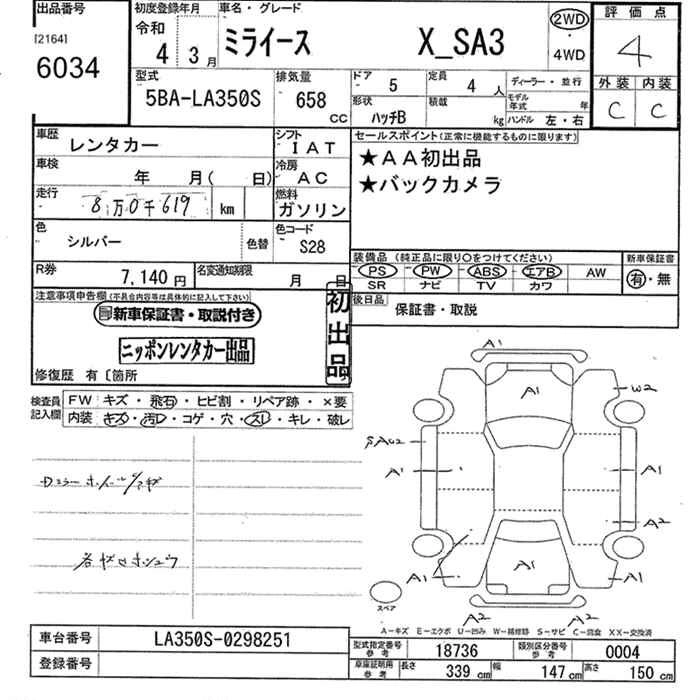 出品番号
[2164]
6034
初度登録年月
令和
4年 3月
車名・グレード
ミライース X_SA3
2WD
・
4WD
評価点
4
外装 内装
C C
型式
5BA-LA350S
排気量
658
CC
ドア
5
定員
4人
ディーラー・並行
形状
ハッチB
積載
kg
モデル年式 年
ハンドル 左・右
車歴
レンタカー
シフト
IAT
車検
年 月( 日)
冷房
AC
走行
8万0千619 km
燃料
ガソリン
色
シルバー
色替
色コード
S28
R券
7,140円
名変通知期限
月 日
セールスポイント(正常に機能するものに限ります)
★AA初出品
★バックカメラ
装備品 (純正品に限り〇をつけてください)
PS PW ABS エアB AW
SR ナビ TV カワ
新車保証書
有・無
後日品
保証書・取説
注意事項申告欄(不具合内容等は具体的に記入して下さい)
新車保証書・取説付き
ニッポンレンタカー出品
初出品
修復歴 有〔箇所
検査員
記入欄
FW キズ・飛石・ヒビ割・リペア跡・×要
内装 キズ・汚レ・コゲ・穴・スレ・キレ・破レ
A1
A1
W2
A1
A1
A2
A1
A1
A1
A2
A2
スペア
A-キズ E-エクボ U-凹み W-補修跡 S-サビ C-腐食 XX-交換済
車台番号
LA350S-0298251
登録番号
型式指定番号
参考
18736
類別区分番号
参考
0004
車庫証明用
参考
長さ 339cm 幅 147cm 高さ 150cm